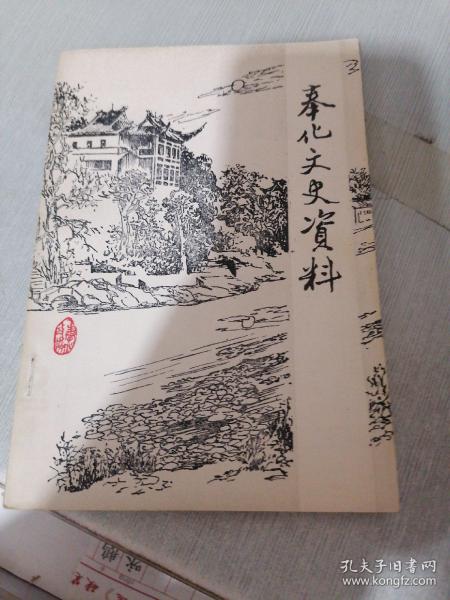 3
奉化文史資料
孔夫子旧书网
www.kongfz.com